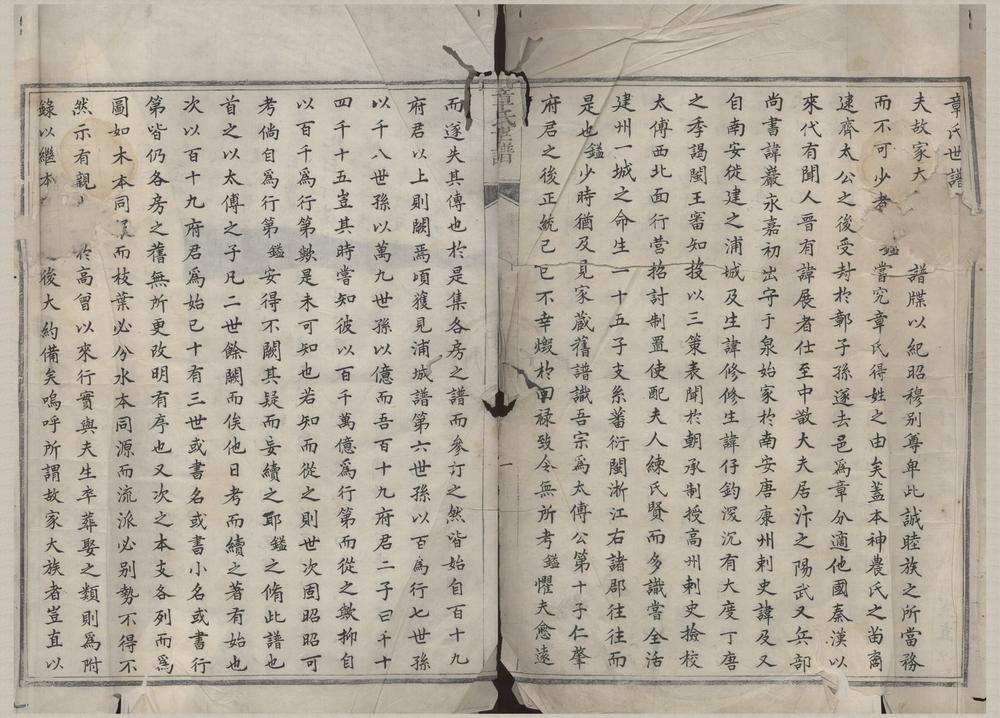 章氏世譜
夫故家大 譜牒以紀昭穆別尊卑此誠睦族之所當務
而不可少者 鎰嘗究章氏得姓之由矣蓋本神農氏之苗裔
逮齊太公之後受封於鄣子孫遂去邑爲章分適他國秦漢以
來代有聞人晉有諱展者仕至中散大夫居汴之陽武又兵部
尚書諱巖永嘉初出守于泉始家於南安唐康州刺史諱及又
自南安徙建之浦城及生諱修修生諱仔鈞深沉有大度丁唐
之季謁閩王審知投以三策表聞於朝承制授高州刺史檢校
太傅西北面行營招討制置使配夫人練氏賢而多識嘗全活
建州一城之命生一十五子支系蕃衍閩浙江右諸郡往往而
是也鎰少時猶及見家蔵舊譜識吾宗爲太傅公第十子仁肇
府君之後正統己巳不幸燬於回禄致令無所考鎰懼夫愈遠
章氏世譜
一
而遂失其傳也於是集各房之譜而參訂之然皆始自百十九
府君以上則闕焉頃獲見浦城譜第六世孫以百爲行七世孫
以千八世孫以萬九世孫以億而吾百十九府君二子曰千十
四千十五豈其時嘗知彼以百千萬億爲行第而從之歟抑自
以百千爲行第歟是未可知也若知而從之則世次固昭昭可
考倘自爲行第鎰安得不闕其疑而妄續之耶鎰之脩此譜也
首之以太傅之子凡二世餘闕而俟他日考而續之著有始也
次以百十九府君爲始已十有三世或書名或書小名或書行
第皆仍各房之舊無所更改明有序也又次之本支各列而爲
圖如木本同 而枝葉必分水本同源而流派必別勢不得不
然示有親 於高曾以來行實與夫生卒葬娶之類則爲附
錄以繼本 後大約備矣嗚呼所謂故家大族者豈直以